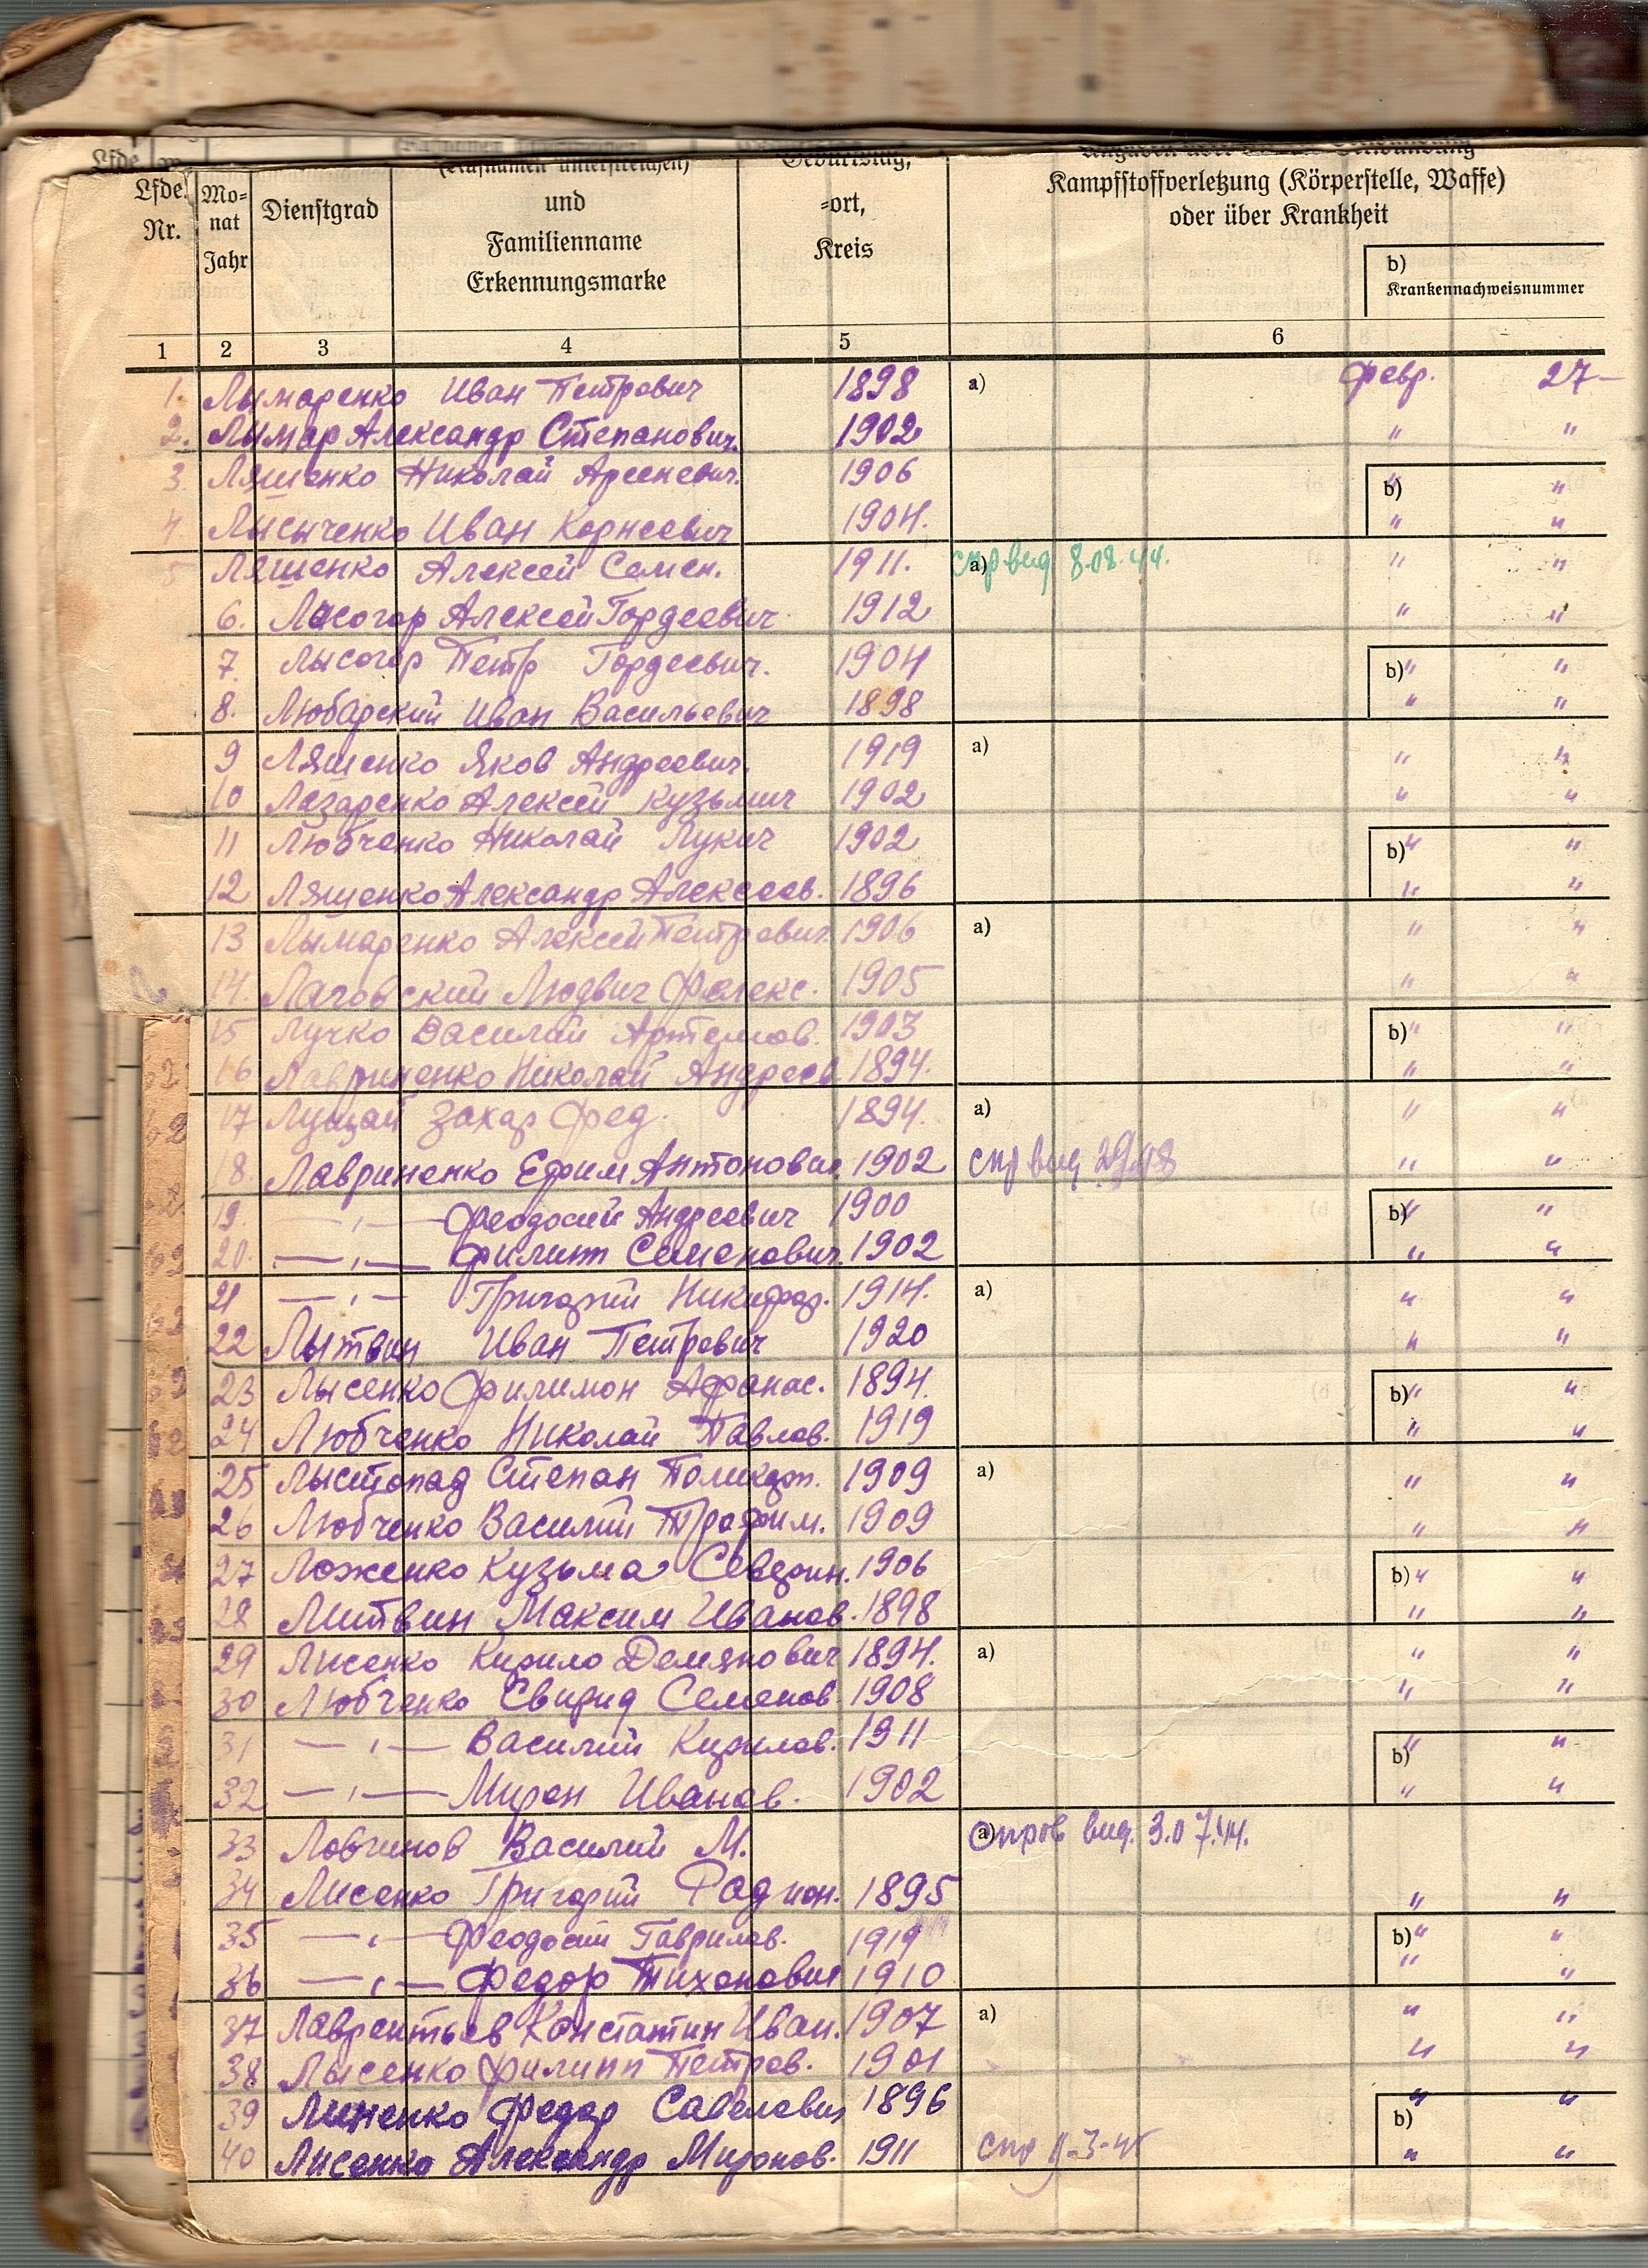 Lfde. Nr.
Mo-nat Jahr
Dienstgrad
(Rufnamen unterstreichen) und Familienname Erkennungsmarke
Geburtstag, -ort, Kreis
Kampfstoffverletzung (Körperstelle, Waffe) oder über Krankheit
b) Krankennachweisnummer
1 2 3 4 5 6
1. Лымаренко Иван Петрович 1898 a) февр. 27-
2. Лымар Александр Степанович. 1902 " "
3. Лященко Николай Арсеневич. 1906 b) " "
4. Лысыченко Иван Корнеевич 1904. " "
5 Лященко Алексей Семен. 1911. a) спр вид 8.08.44. " "
6. Лысогор Алексей Гордеевич 1912 " "
7. Лысогор Петр Гордеевич. 1904 b) " "
8. Любарский Иван Васильевич 1898 " "
9 Лященко Яков Андреевич. 1919 a) " "
10 Лазаренко Алексей Кузьмич 1902 " "
11 Любченко Николай Лукич 1902 b) " "
12 Лященко Александр Алексеев. 1896 " "
13 Лымаренко Алексей Петрович. 1906 a) " "
14. Людвиг 1905 " "
15 Лучко Василий Артемов. 1903 b) " "
16 Лавриненко Николай Андреев 1894. " "
17 Захар Фед. 1894. a) " "
18. Лавриненко Ефим Антонович. 1902 спр вид " "
19. —„— Феодосий Андреевич 1900 b) " "
20. —„— Филипп Семенович. 1902 " "
21 —„— Григорий Никифор. 1914. a) " "
22 Лытвин Иван Петрович 1920 " "
23 Лысенко Филимон Афанас. 1894. b) " "
24 Любченко Николай Павлов. 1919 " "
25 Лыстопад Степан Поликарп. 1909 a) " "
26 Любченко Василий Трофим. 1909 " "
27 Ложенко Кузьма Северин. 1906 b) " "
28 Литвин Максим Иванов. 1898 " "
29 Лисенко Кирило Демянович 1894. a) " "
30 Любченко Свирид Семенов 1908 " "
31 —„— Василий Кирилов. 1911 b) " "
32 —„— Мирон Иванов. 1902 " "
33 Ловчинов Василий М. a) справ вид. 3.07.44.
34 Лисенко Григорий Родион. 1895 " "
35 —„— Феодосий Гаврилов. 1919 b) " "
36 —„— Федор Тихонович 1910 " "
37 Лаврентьев Констатин Иван. 1907 a) " "
38 Лысенко Филипп Петров. 1901 " "
39 Линенко Федор Савелович 1896 b) " "
40 Лисенко Александр Миронов. 1911 спр " "